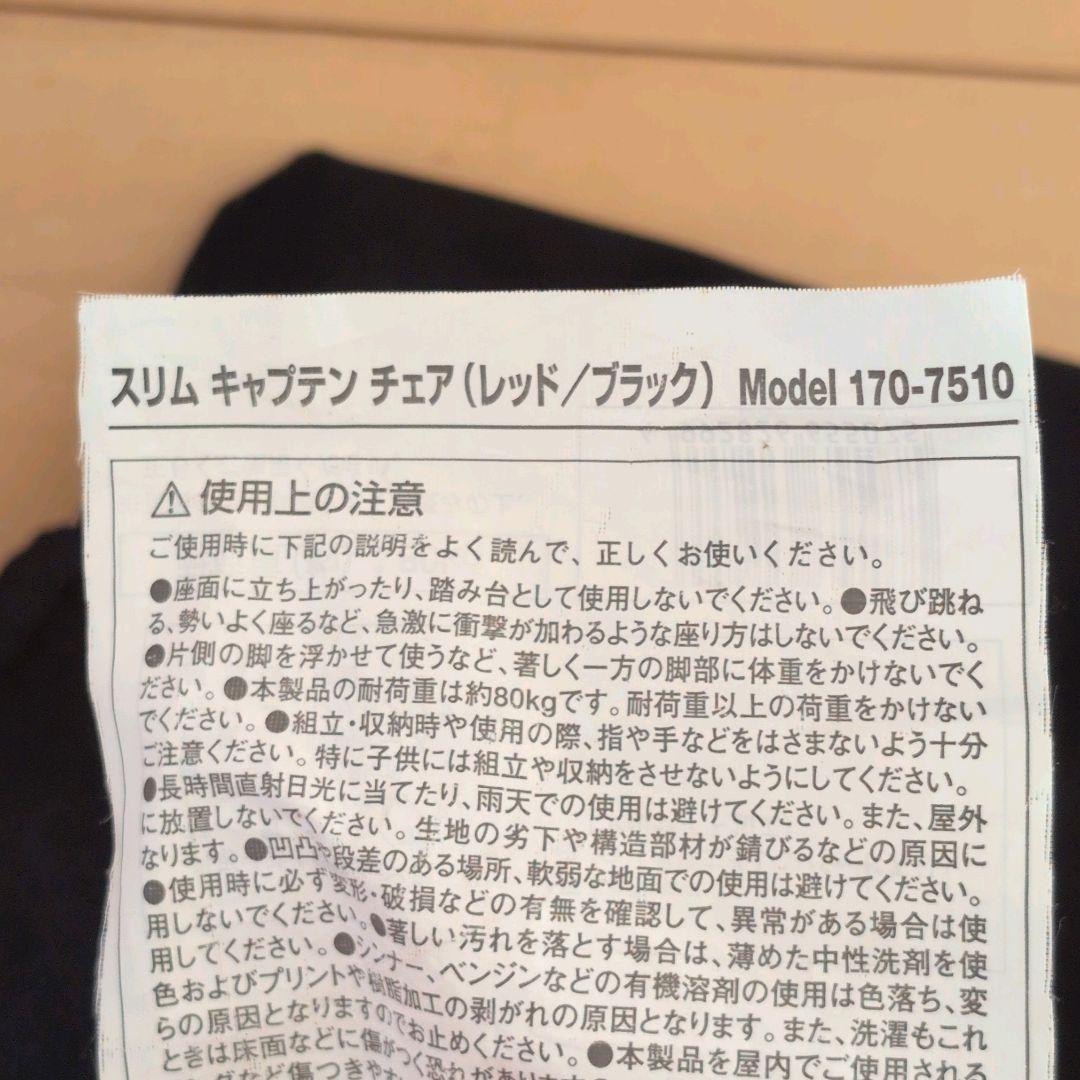 スリム キャプテン チェア(レッド／ブラック) Model 170-7510
⚠使用上の注意
ご使用時に下記の説明をよく読んで、正しくお使いください。
●座面に立ち上がったり、踏み台として使用しないでください。●飛び跳ね
る、勢いよく座るなど、急激に衝撃が加わるような座り方はしないでください。
●片側の脚を浮かせて使うなど、著しく一方の脚部に体重をかけないでく
ださい。●本製品の耐荷重は約80kgです。耐荷重以上の荷重をかけない
でください。●組立・収納時や使用の際、指や手などをはさまないよう十分
ご注意ください。特に子供には組立や収納をさせないようにしてください。
●長時間直射日光に当てたり、雨天での使用は避けてください。また、屋外
に放置しないでください。生地の劣下や構造部材が錆びるなどの原因に
なります。●凹凸や段差のある場所、軟弱な地面での使用は避けてください。
●使用時に必ず変形・破損などの有無を確認して、異常がある場合は使
用しないでください。●著しい汚れを落とす場合は、薄めた中性洗剤を使
用してください。●シンナー、ベンジンなどの有機溶剤の使用は色落ち、変
色およびプリントや樹脂加工の剥がれの原因となります。また、洗濯もこれ
らの原因となりますのでお止めください。●本製品を屋内でご使用される
ときは床面などに傷がつく恐れがあります
など傷つきや